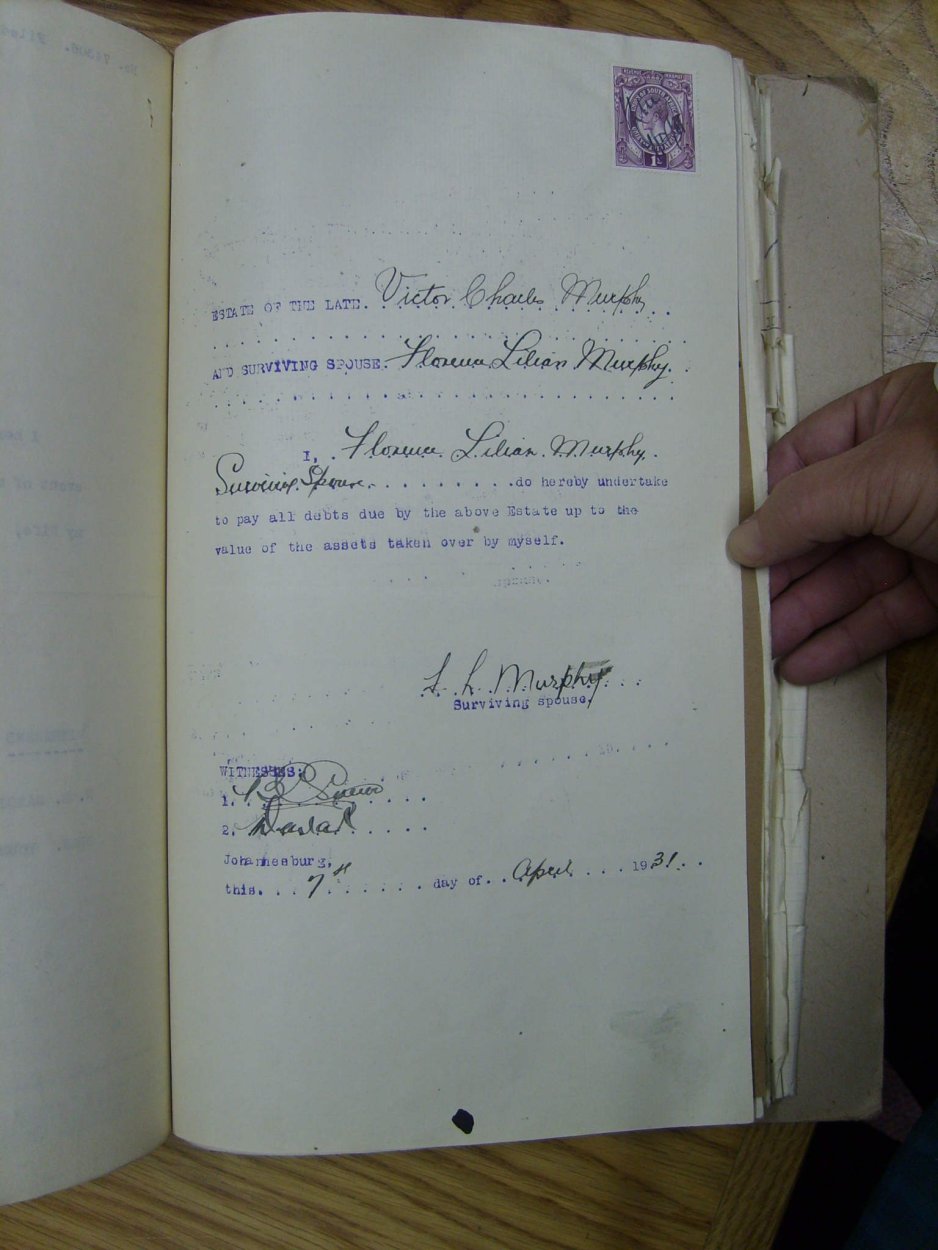 REVENUE INKOMST
UNION OF SOUTH AFRICA
1
ESTATE OF THE LATE. Victor Charles Murphy
AND SURVIVING SPOUSE. Florence Lilian Murphy.
I, . Florence Lilian Murphy.
Surviving Spouse. . . . . . . . . .do hereby undertake
to pay all debts due by the above Estate up to the
value of the assets taken over by myself.
F. L. Murphy
Surviving spouse.
WITNESSES:
1.
2.
Johannesburg,
this. . . 7th . . . . . . day of. . April. . . . 1931. . .